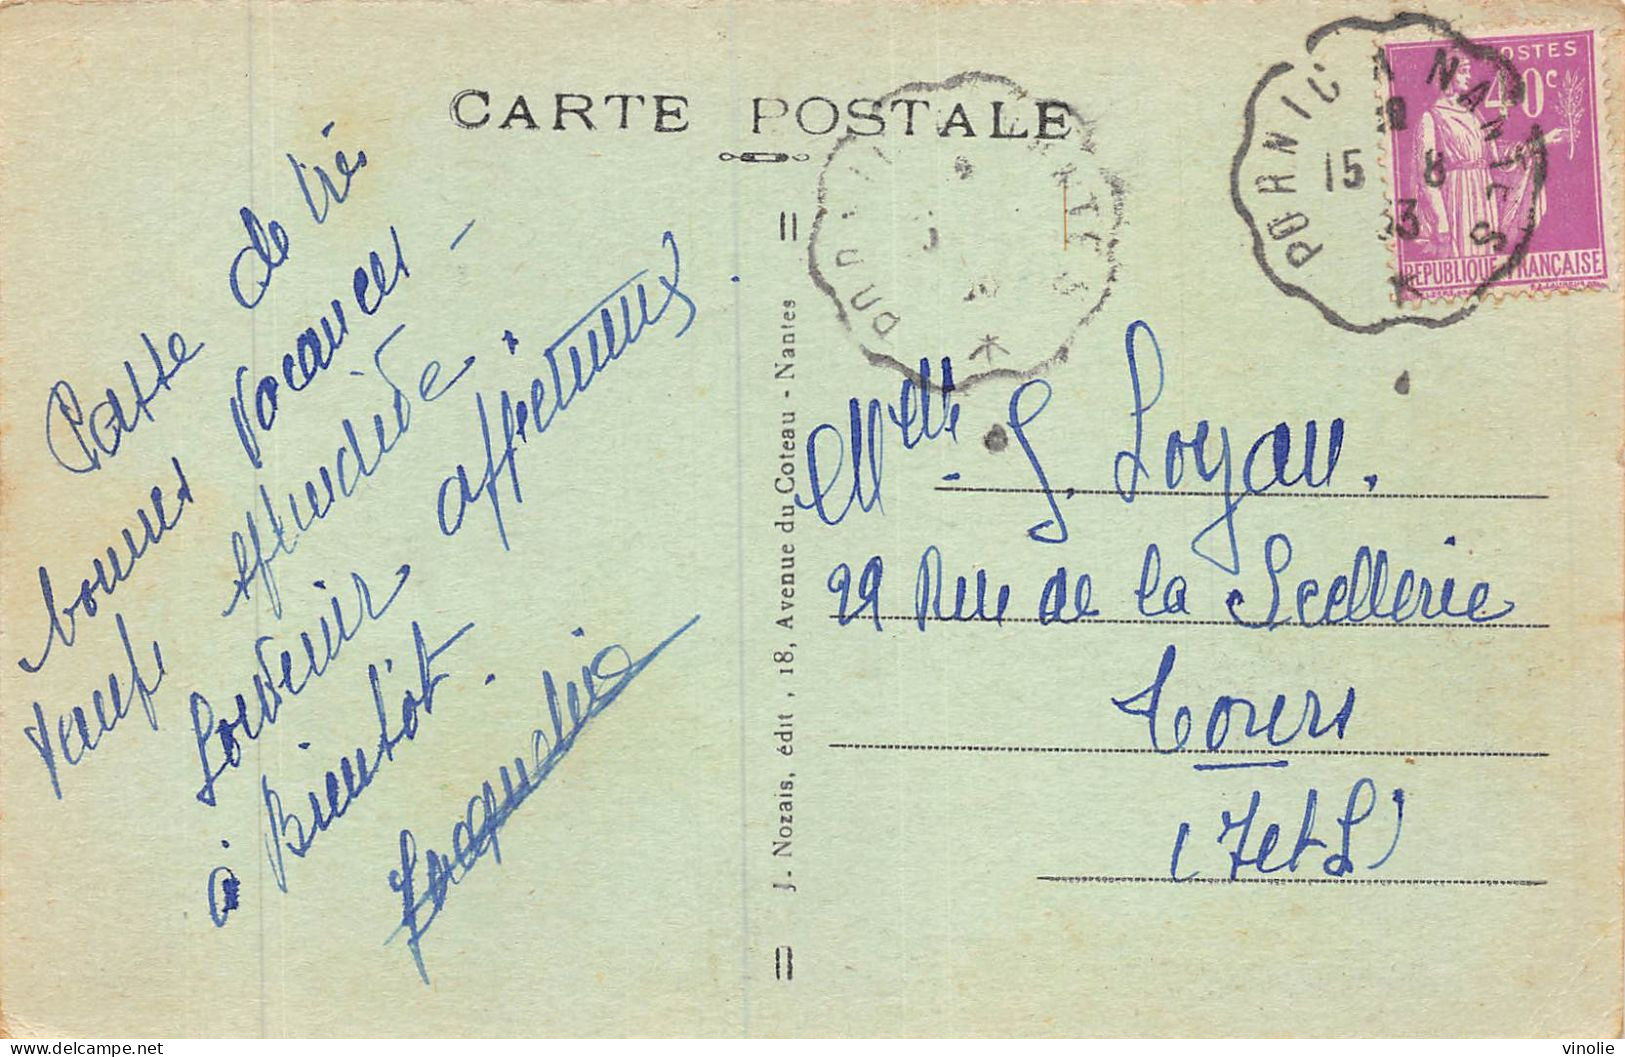 CARTE POSTALE
Passe de très
bonnes Vacances -
temps splendide.
Souvenir affectueux.
à Bientôt.
Jacqueline
J. Nozais, édit, 18, Avenue du Coteau - Nantes
PORNIC A NANTES
15 8
33
POSTES
40c
REPUBLIQUE FRANÇAISE
Melle G. Loyau.
29 Rue de la Scellerie
Tours
(I et L)
vinolie